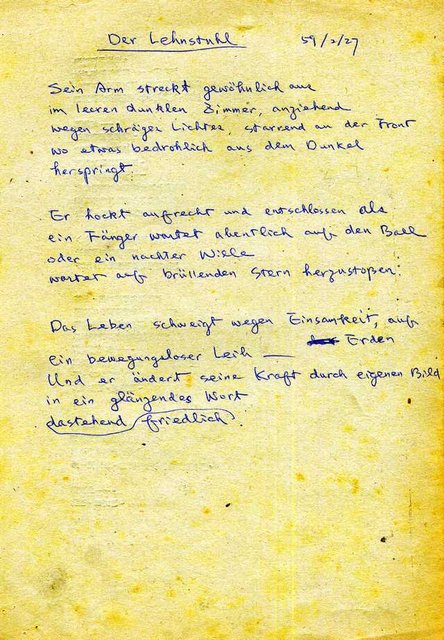 Der Lehnstuhl 59/2/27
Sein Arm streckt gewöhnlich aus
im leeren dunklen Zimmer, anziehend
wegen schräger Lichter, starrend an der Front
wo etwas bedrohlich aus dem Dunkel
herspringt
Er hockt aufrecht und entschlossen als
ein Fänger wartet abentlich auf den Ball
oder ein nackter Wisle
wartet auf brüllenden Stern herzustoßen.
Das Leben schweigt wegen Einsamkeit, auf
Erden
ein bewegungsloser Leib —
Und er ändert seine Kraft durch eigenen Bild
in ein glänzendes Wort
dastehend friedlich.